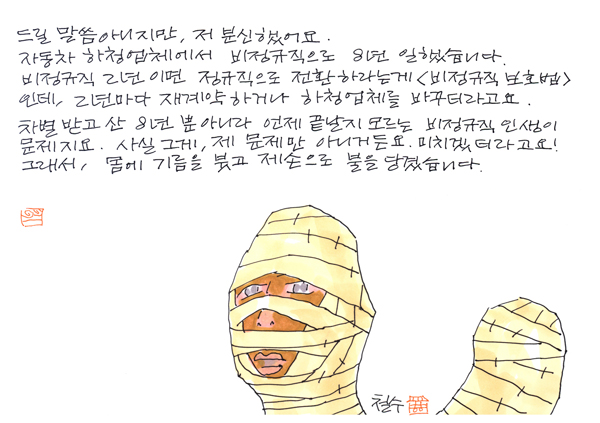 드릴 말씀아니지만, 저 분신했어요.
자동차 하청업체에서 비정규직으로 8년 일했습니다.
비정규직 2년이면 정규직으로 전환하라는게 <비정규직 보호법>
인데, 2년마다 재계약하거나 하청업체를 바꾸더라고요.
차별 받고 산 8년 뿐아니라 언제 끝날지 모르는 비정규직 인생이
문제지요. 사실 그게, 제 문제만 아니거든요. 미치겠더라고요!
그래서, 몸에 기름을 붓고 제손으로 불을 당겼습니다.
철수